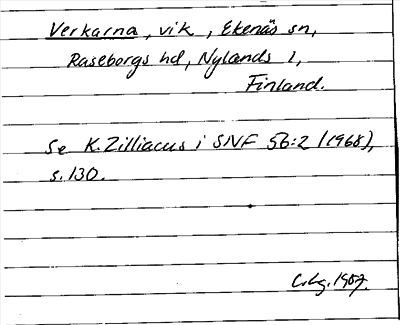 Verkarna, vik, Ekenäs sn,
Raseborgs hd, Nylands l,
Finland.
Se K. Zilliacus i SNF 56:2 (1968),
s. 130.